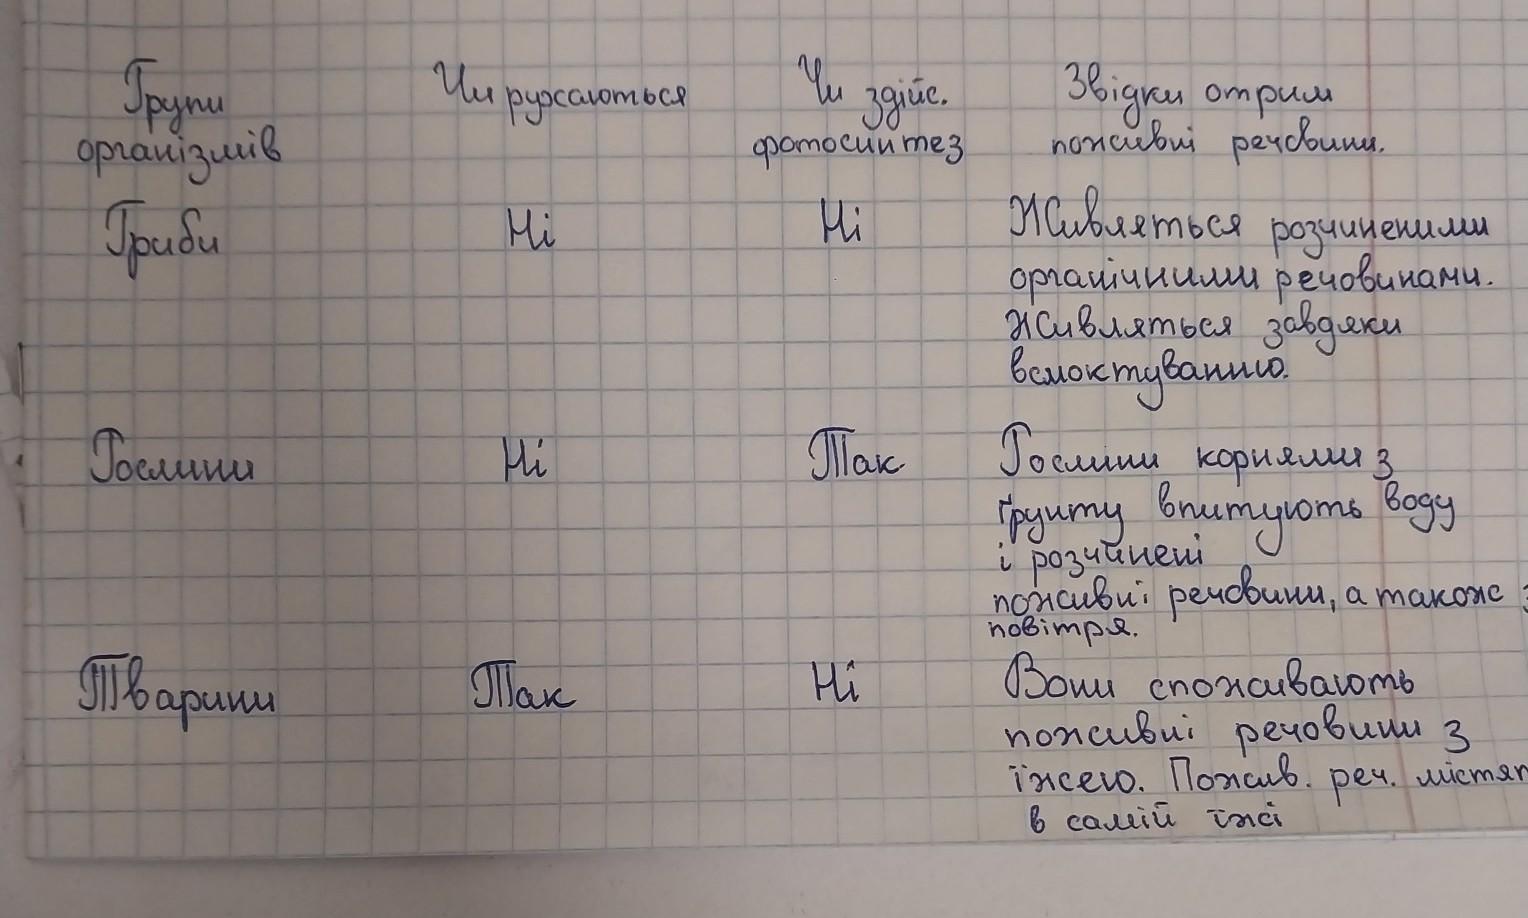 Групи
організмів
Чи рухаються
Чи здійс.
фотосинтез
Звідки отрим
поживні речовини.
Гриби
Ні
Ні
Живляться розчиненими
органічними речовинами.
Живляться завдяки
всмоктуванню.
Рослини
Ні
Так
Рослини корнями з
ґрунту впитують воду
і розчинені
поживні речовини, а також з
повітря.
Тварини
Так
Ні
Вони споживають
поживні речовини з
їжею. Пожив. реч. містят
в самій їжі